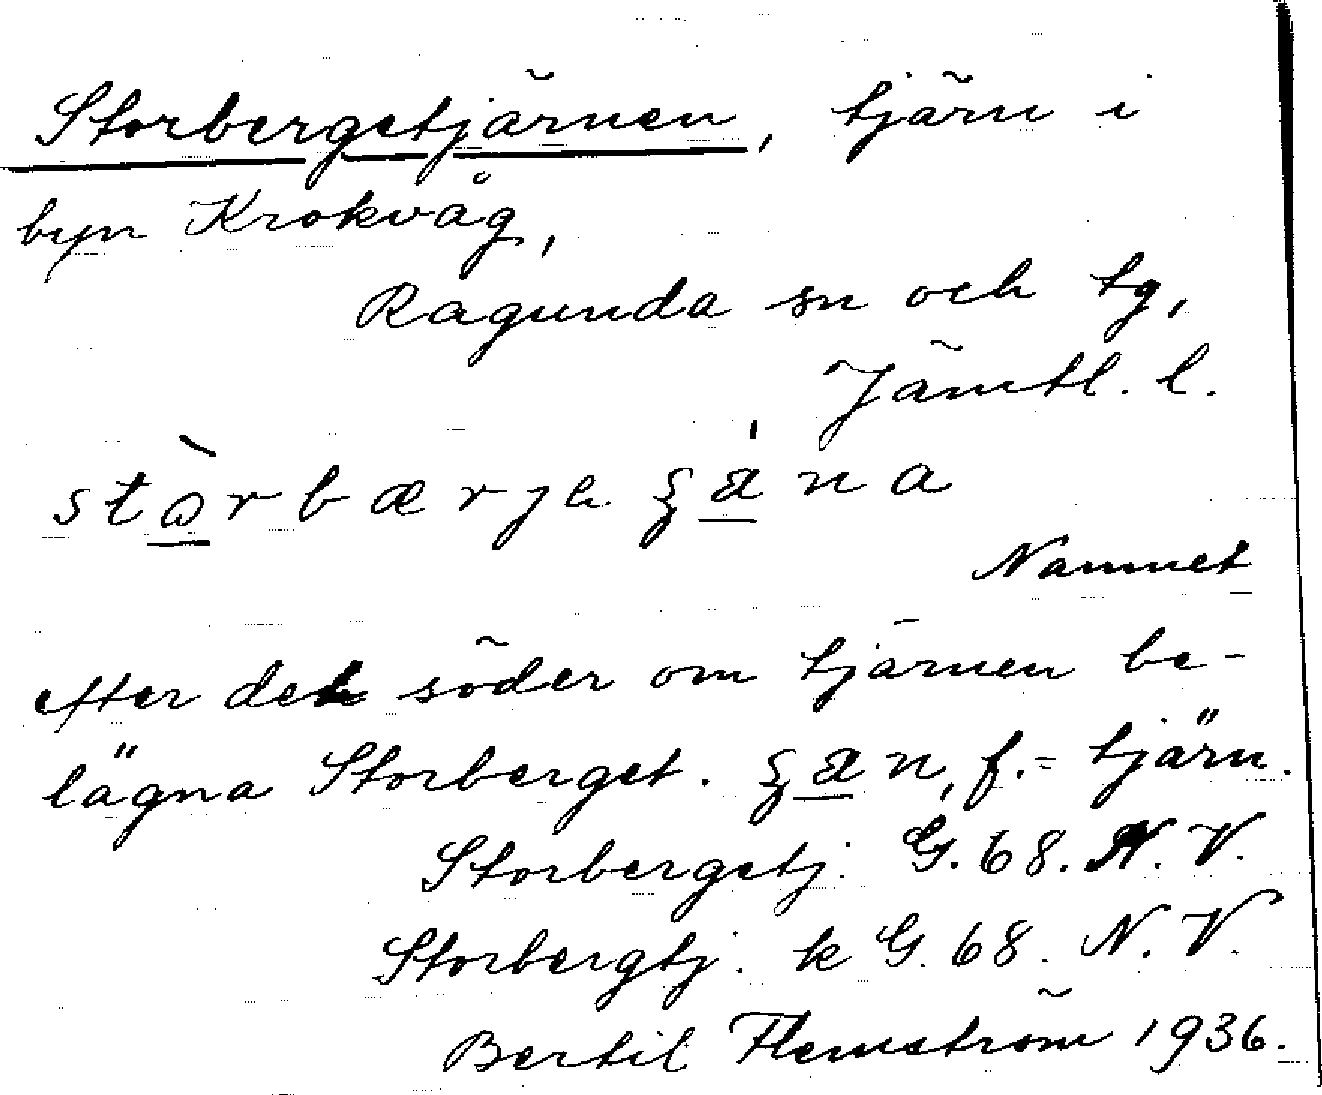 Storbergetjärnen, tjärn i
byn Krokvåg,
Ragunda sn och tg,
Jämtl. l.
Namnet
efter det söder om tjärnen be-
lägna Storberget. f. = tjärn.
Storbergetj. G. 68. N. V.
Storbergtj. k G. 68. N. V.
Bertil Flemström 1936.